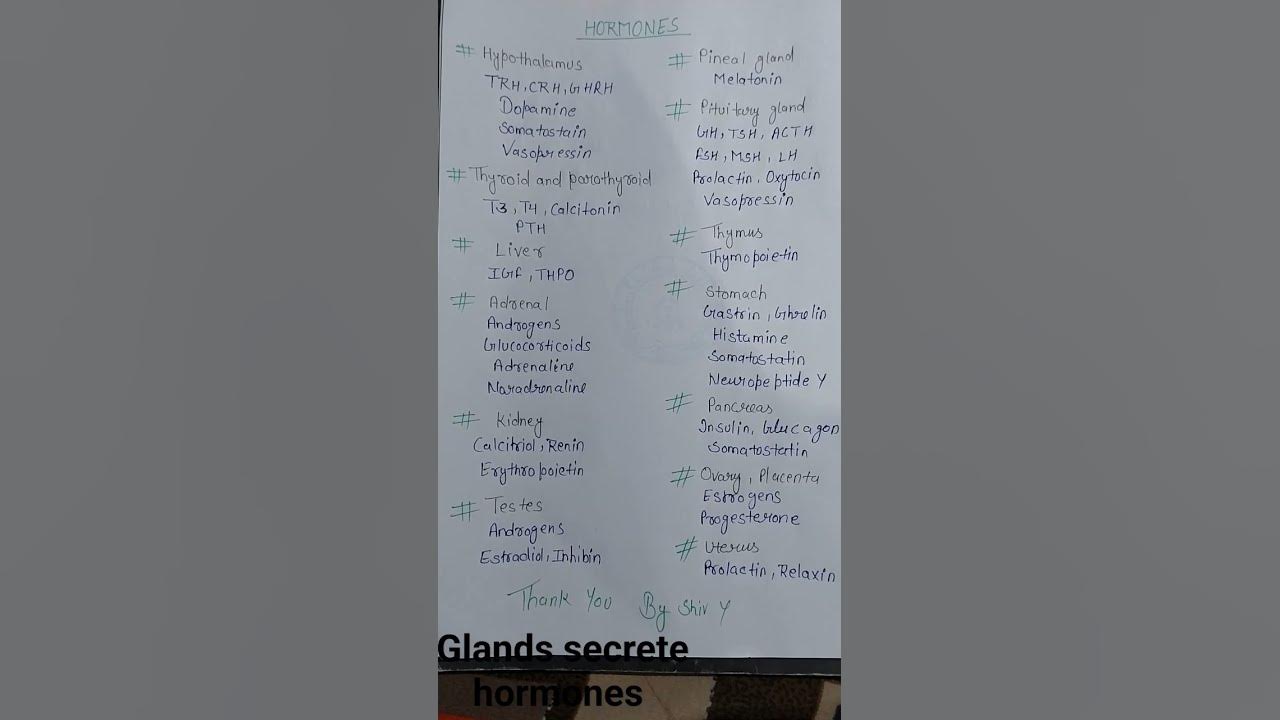 HORMONES
# Hypothalamus
TRH, CRH, GHRH
Dopamine
Somatostain
Vasopressin
# Thyroid and parathyroid
T3, T4, Calcitonin
PTH
# Liver
IGF, THPO
# Adrenal
Androgens
Glucocorticoids
Adrenaline
Naradrenaline
# Kidney
Calcitriol, Renin
Erythropoietin
# Testes
Androgens
Estradiol, Inhibin
# Pineal gland
Melatonin
# Pituitary gland
GH, TSH, ACTH
FSH, MSH, LH
Prolactin, Oxytocin
Vasopressin
# Thymus
Thymopoietin
# Stomach
Gastrin, Ghrelin
Histamine
Somatostatin
Neuropeptide Y
# Pancreas
Insulin, Glucagon
Somatostatin
# Ovary, Placenta
Estrogens
Progesterone
# Uterus
Prolactin, Relaxin
Thank You By Shiv Y
Glands secrete
hormones